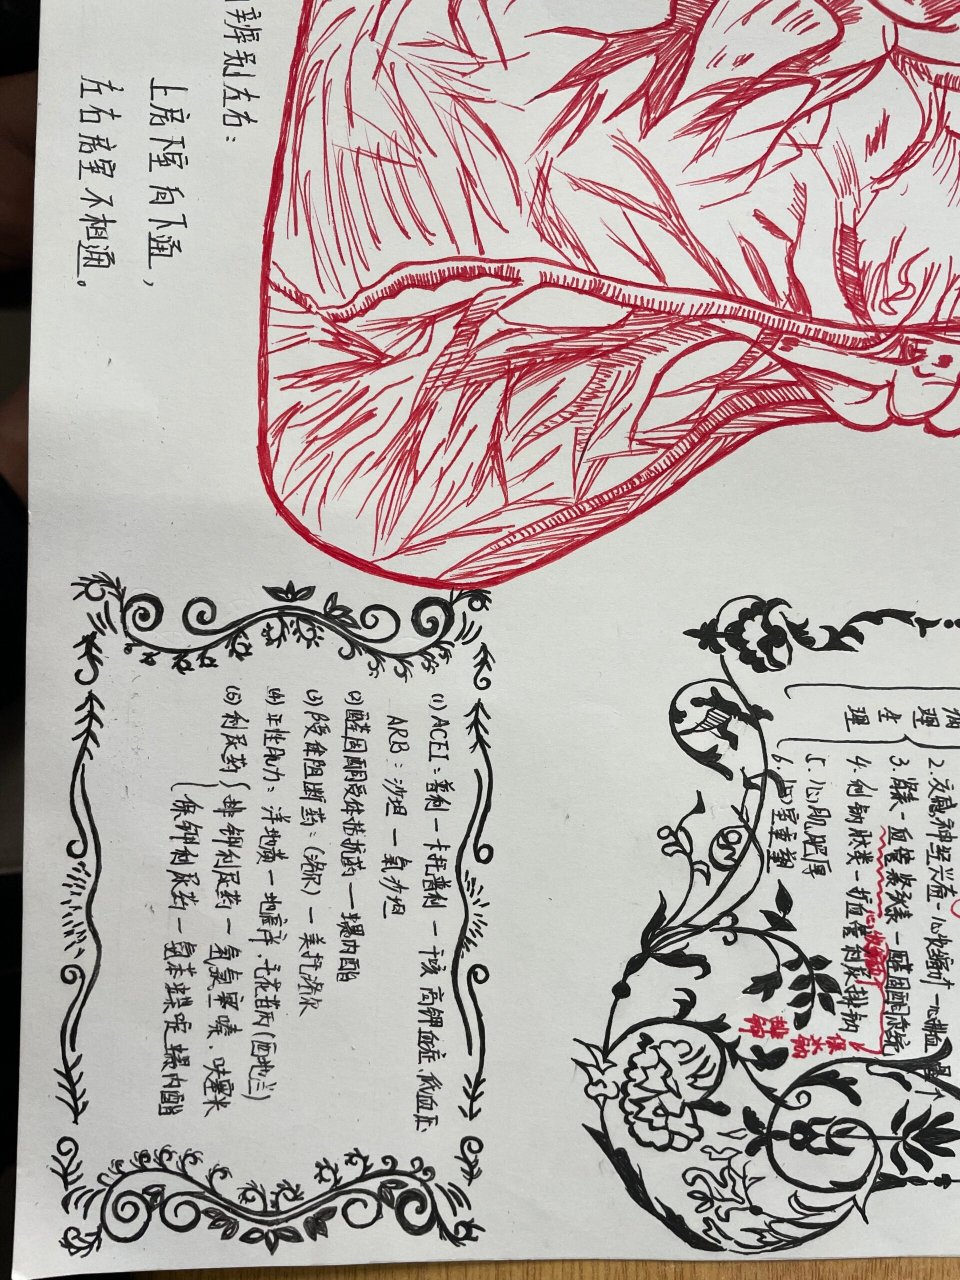 辨别左右：
上房下室向下通，
左右房室不相通。
理
生
理
2.交感神经兴奋-心收缩↑-心输血量↑
3.肾素-血管紧张素-醛固酮系统
4.利钠肽类-扩血管利尿排钠
5.心肌肥厚
6.心室重塑
心收缩↑
保水钠
排钾
(1) ACEI：普利一卡托普利一干咳 高钾血症、低血压
ARB：沙坦一氯沙坦
(2)醛固酮受体拮抗药一螺内酯
(3) β受体阻断药：(洛尔)一美托洛尔
(4)正性肌力：洋地黄一地高辛、毛花苷丙(西地兰)
(5)利尿药{排钾利尿药一氢氯噻嗪、呋塞米
保钾利尿药一氨苯蝶啶 螺内酯